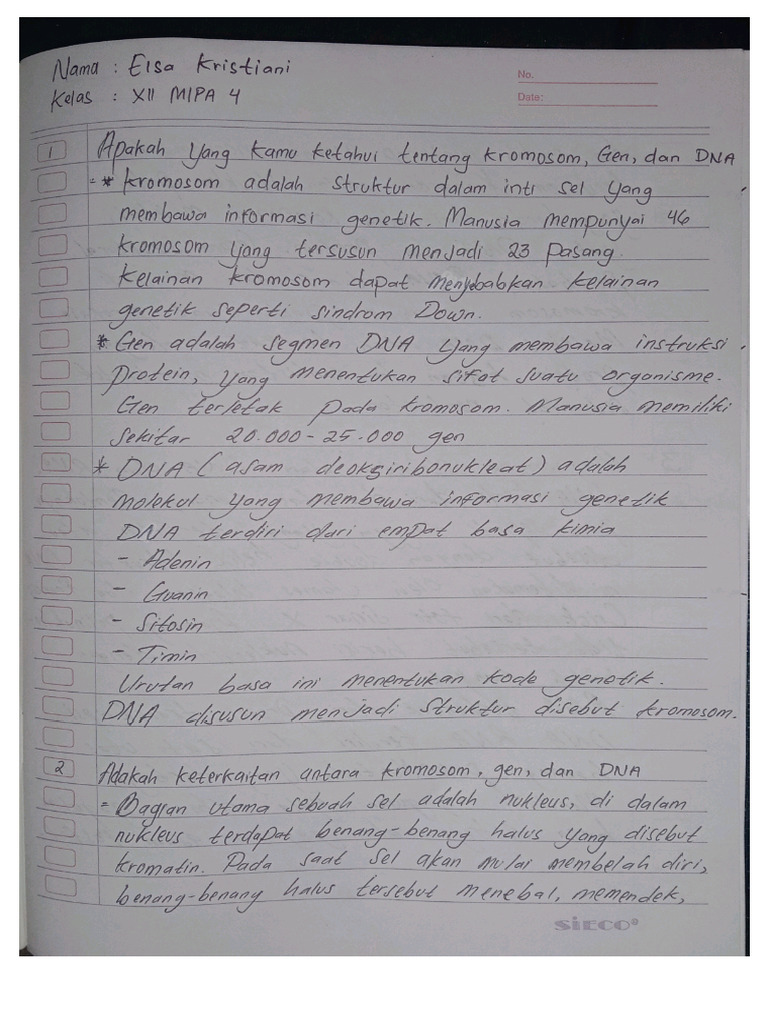 Nama : Elsa Kristiani
Kelas : XII MIPA 4
No.
Date:
1 Apakah yang kamu ketahui tentang kromosom, Gen, dan DNA
= * kromosom adalah struktur dalam inti sel yang
membawa informasi genetik. Manusia mempunyai 46
kromosom yang tersusun menjadi 23 pasang.
kelainan kromosom dapat menyebabkan kelainan
genetik seperti sindrom Down.
* Gen adalah segmen DNA yang membawa instruksi
protein, yang menentukan sifat suatu organisme.
Gen terletak pada kromosom. Manusia memiliki
sekitar 20.000 - 25.000 gen
* DNA (asam deoksiribonukleat) adalah
molekul yang membawa informasi genetik
DNA terdiri dari empat basa kimia
- Adenin
- Guanin
- Sitosin
- Timin
Urutan basa ini menentukan kode genetik.
DNA disusun menjadi struktur disebut kromosom.
2 Adakah keterkaitan antara kromosom, gen, dan DNA
= Bagian utama sebuah sel adalah nukleus, di dalam
nukleus terdapat benang-benang halus yang disebut
kromatin. Pada saat sel akan mulai membelah diri,
benang-benang halus tersebut menebal, memendek,
SiECO